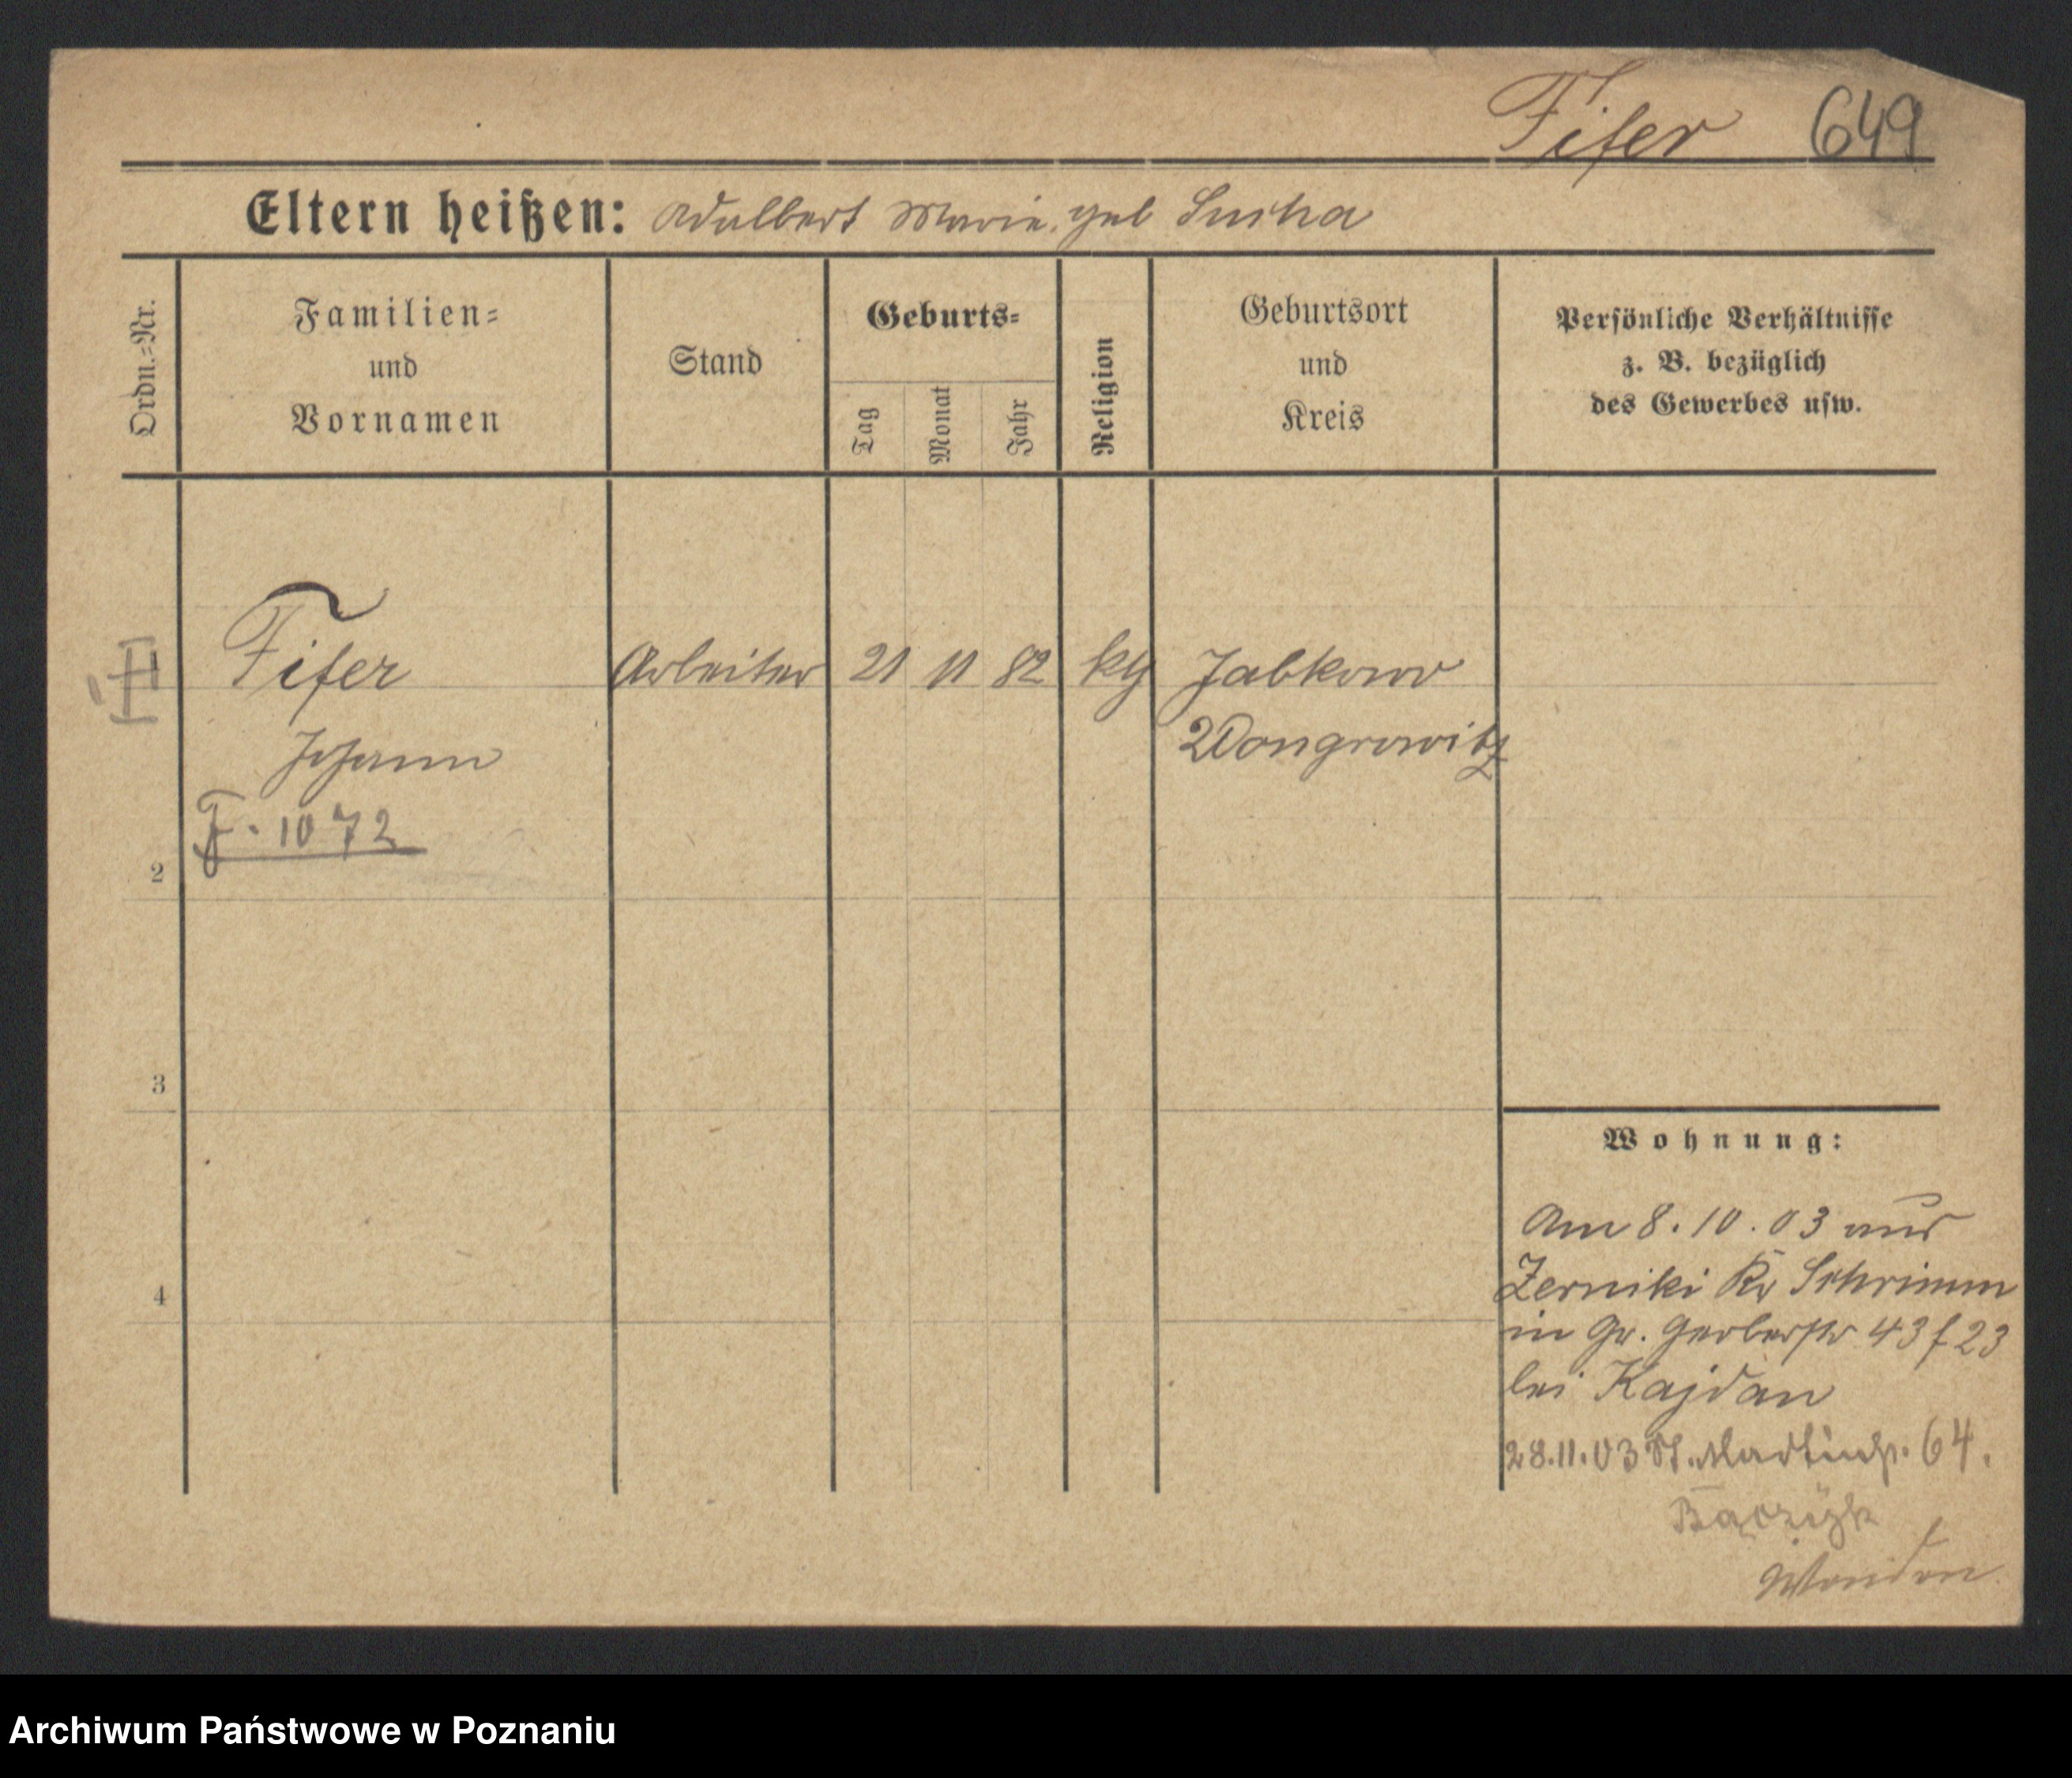 Fifer 649
Eltern heißen: Adalbert Marie, geb Sucha
Ordn.=Nr.
Familien=
und
Vornamen
Stand
Geburts=
Tag
Monat
Jahr
Religion
Geburtsort
und
Kreis
Persönliche Verhältnisse
z. B. bezüglich
des Gewerbes usw.
Fifer Arbeiter 21 11 82 kg Jabkowo
Johann Wongrowitz
F. 1072
2
3
4
Wohnung:
Am 8.10.03 aus
Zerniki Kr Schrimm
in Gr. Gerberstr 43 f 23
bei Kajdan
28.11.03 St. Martinstr. 64.
Archiwum Państwowe w Poznaniu